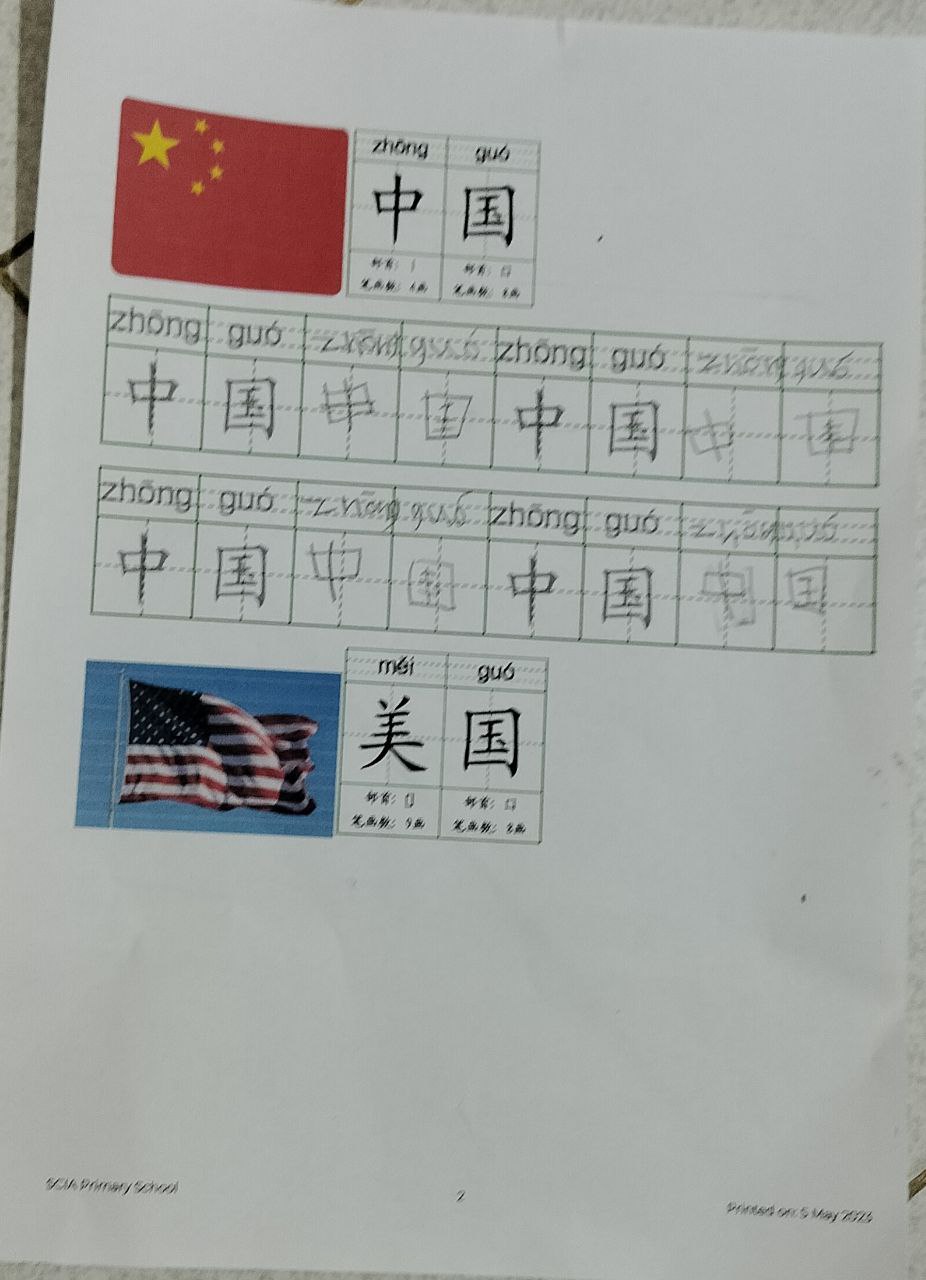 zhōng guó
中 国
部首： 丨 部首： 囗
笔画数： 4画 笔画数： 8画
zhōng guó zhōng guó zhōng guó zhōng guó
中 国 中 国 中 国 中 国
zhōng guó zhōng guó zhōng guó zhōng guó
中 国 中 国 中 国 中 国
měi guó
美 国
部首： 部首： 囗
笔画数： 9画 笔画数： 8画
SCIA Primary School
2
Printed on: 5 May 2025